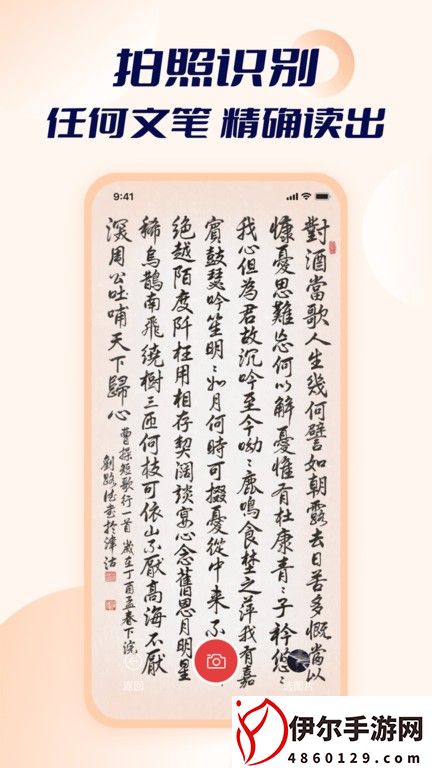 拍照识别
任何文笔 精确读出
9:41
對酒當歌人生幾何譬如朝露去日苦多慨當以
慷憂思難忘何以解憂惟有杜康青〻子衿悠〻
我心但為君故沉吟至今呦〻鹿鳴食埜之苹我有嘉
賓鼓瑟吹笙明〻如月何時可掇憂從中來不
絕越陌度阡枉用相存契闊談宴心念舊恩月明星
稀烏鵲南飛繞樹三匝何枝可依山不厭高海不厭
深周公吐哺天下歸心
曹操短歌行一首 歲在丁酉孟春下浣
劉 書於津沽
返回
选图片
伊尔手游网
4860129.com